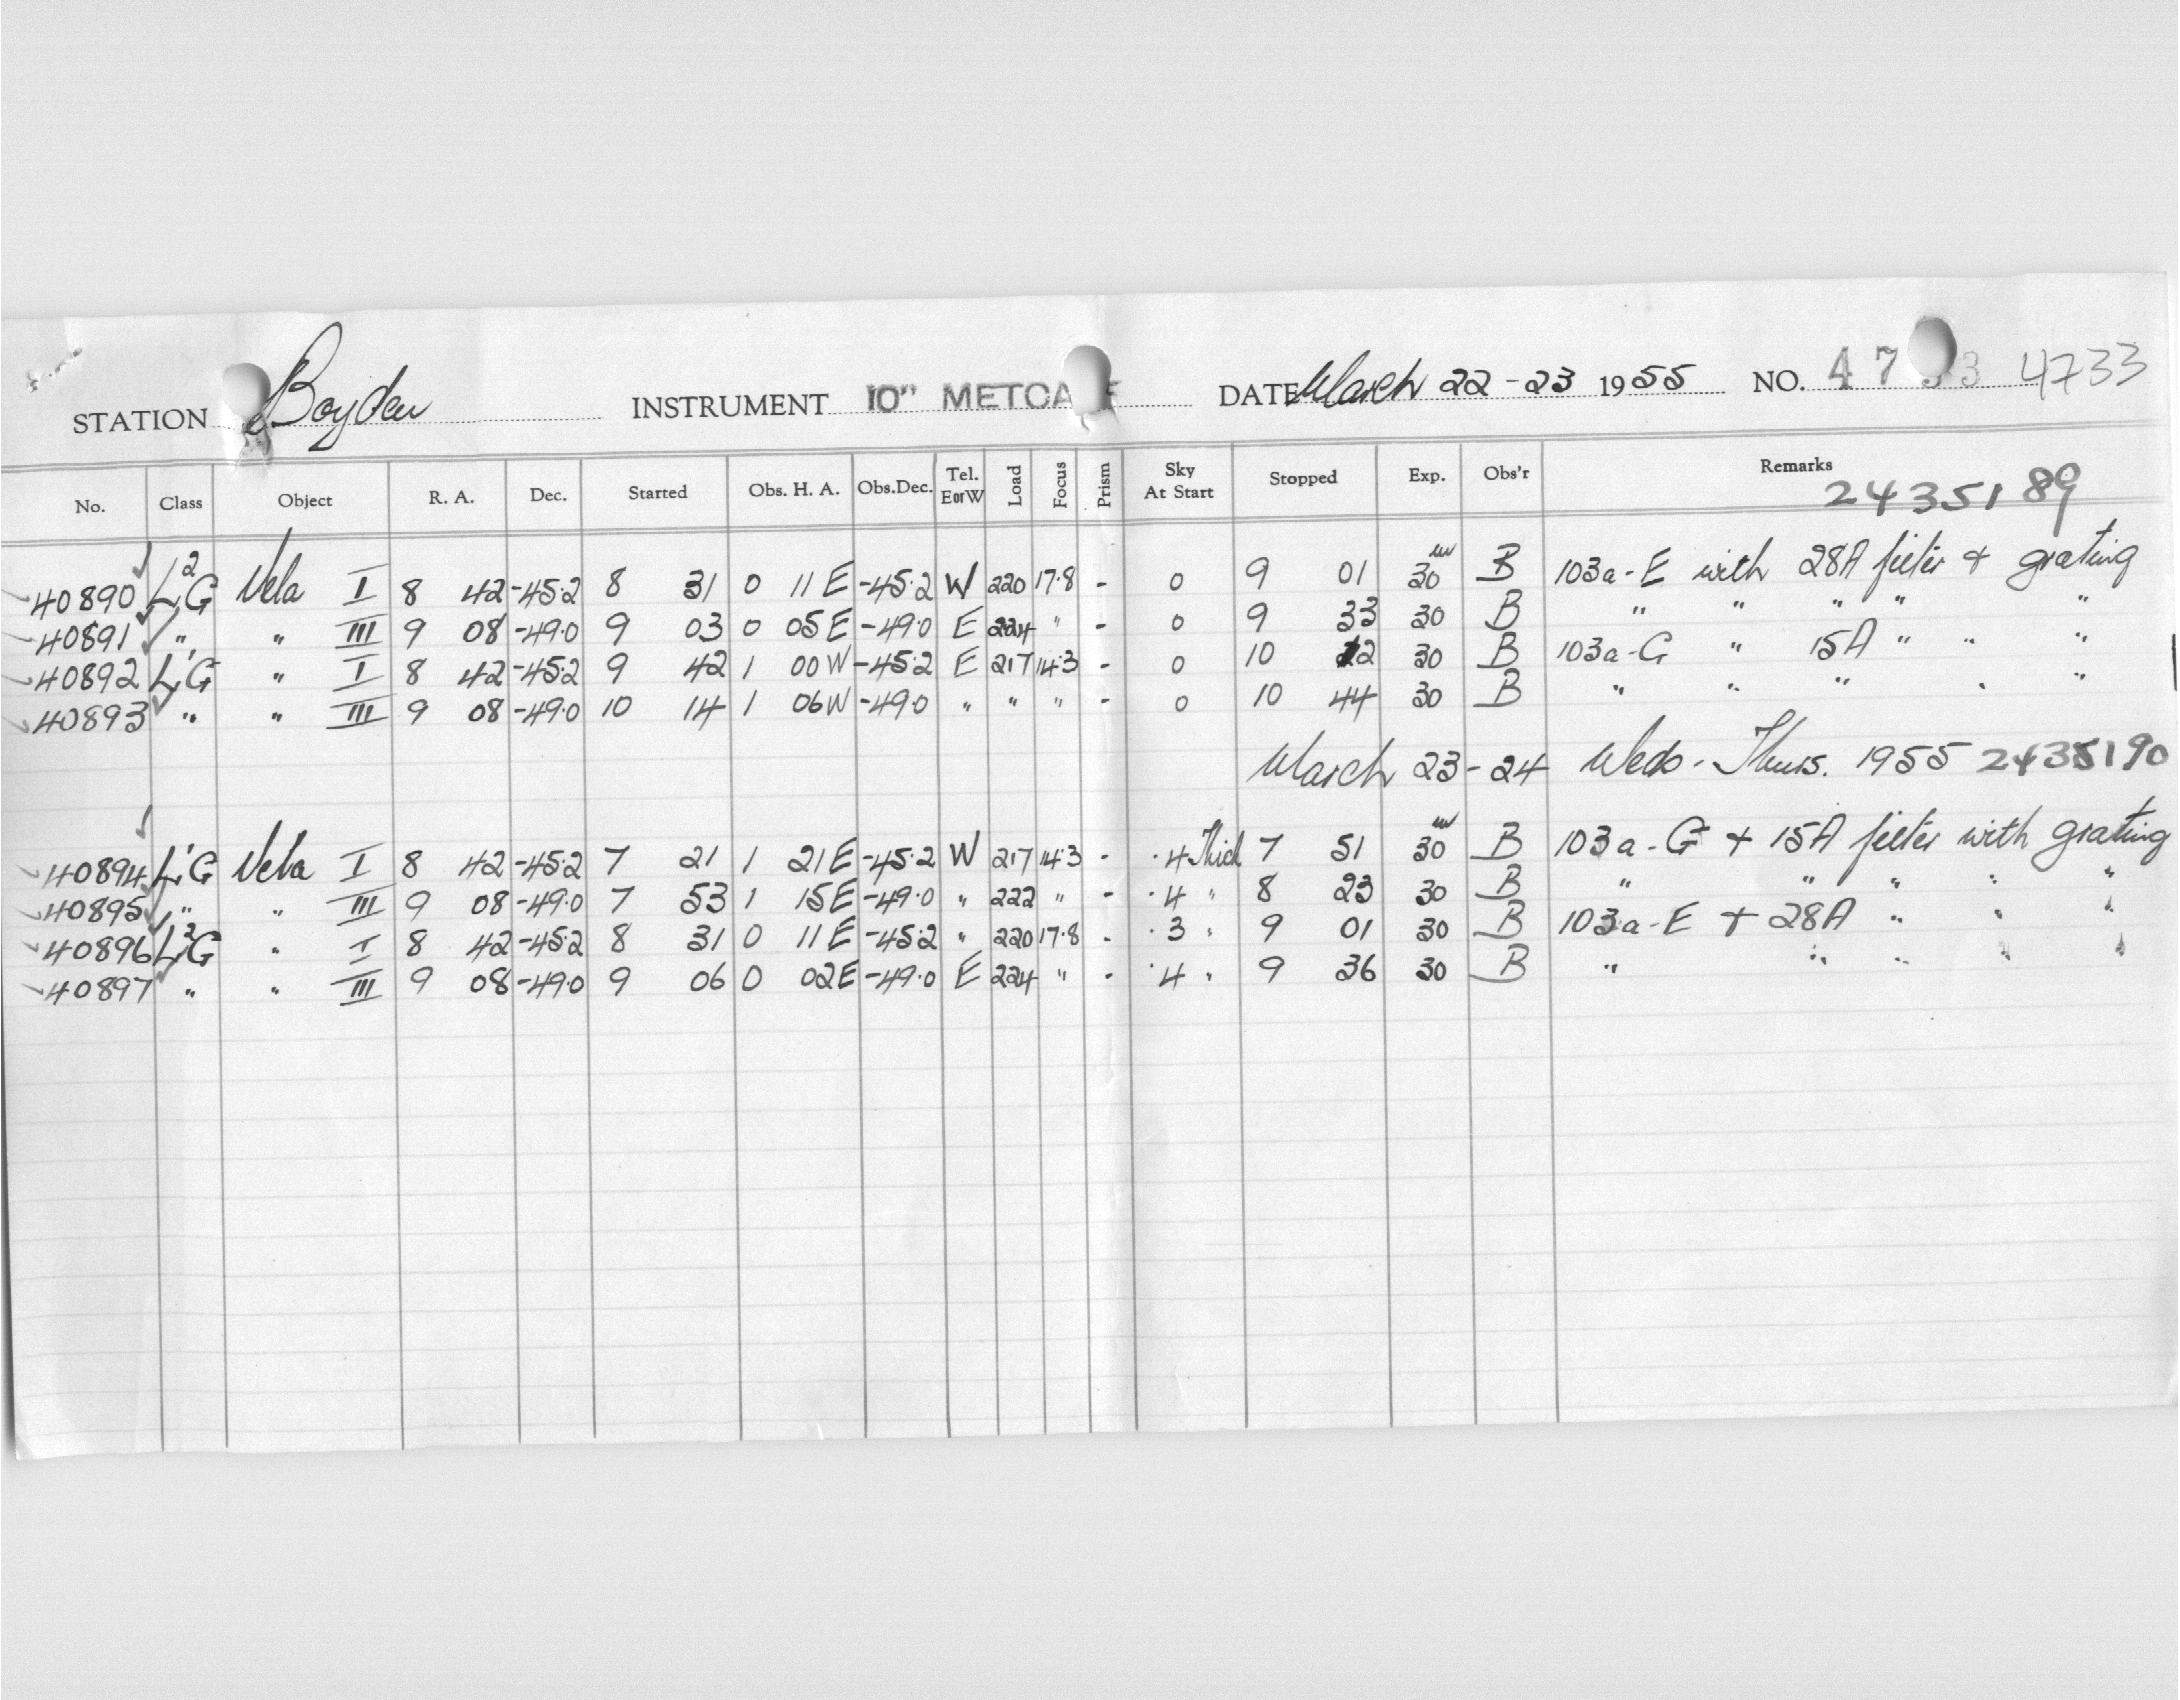 STATION Boyden INSTRUMENT 10" METCALF DATE March 22-23 1955 NO. 4733 4733
No. Class Object R. A. Dec. Started Obs. H. A. Obs.Dec. Tel. E or W Load Focus Prism Sky At Start Stopped Exp. Obs'r Remarks
2435189
40890 L²G Vela I 8 42 -45.2 8 31 0 11 E -45.2 W 220 17.8 - 0 9 01 30 B 103a-E with 28A filter + grating
40891 " " III 9 08 -49.0 9 03 0 05 E -49.0 E 224 " - 0 9 33 30 B " " " " "
40892 L'G " I 8 42 -45.2 9 42 1 00 W -45.2 E 217 14.3 - 0 10 12 30 B 103a-G " 15A " " "
40893 " " III 9 08 -49.0 10 14 1 06 W -49.0 " " " - 0 10 44 30 B " " " " "
March 23-24 Weds-Thurs. 1955 2435190
40894 L'G Vela I 8 42 -45.2 7 21 1 21 E -45.2 W 217 14.3 - .4 Thick 7 51 30 B 103a-G + 15A filter with grating
40895 " " III 9 08 -49.0 7 53 1 15 E -49.0 " 222 " - .4 " 8 23 30 B " " " " "
40896 L²G " I 8 42 -45.2 8 31 0 11 E -45.2 " 220 17.8 - .3 " 9 01 30 B 103a-E + 28A " " "
40897 " " III 9 08 -49.0 9 06 0 02 E -49.0 E 224 " - .4 " 9 36 30 B " " " " "